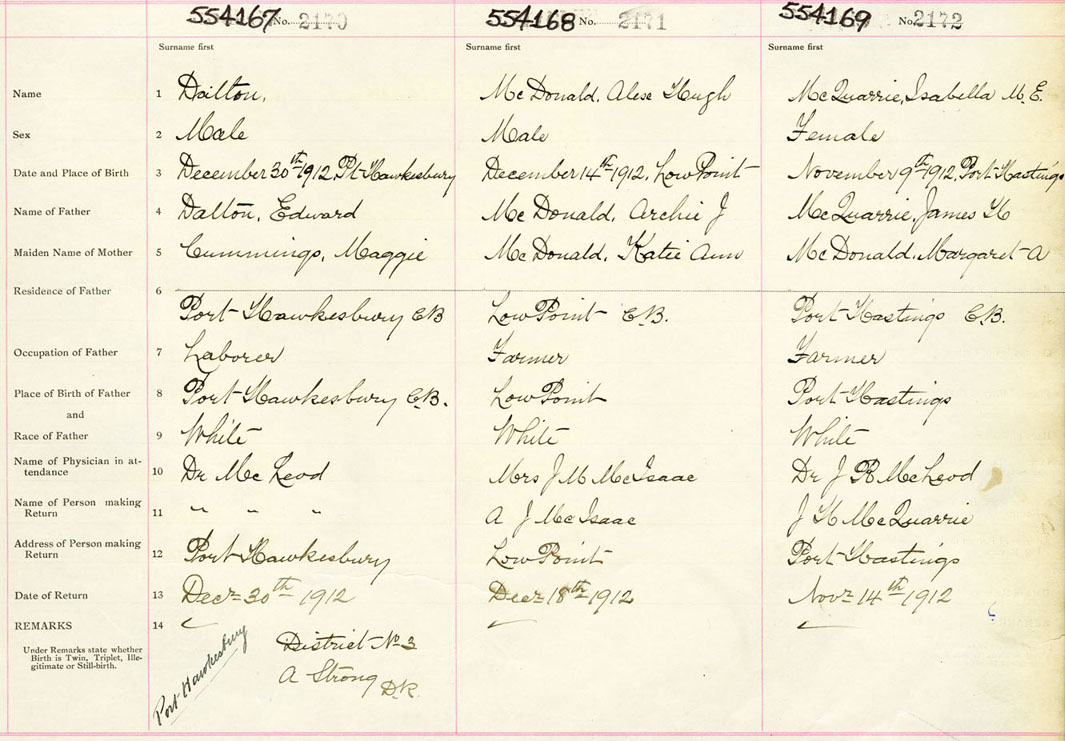 554167 No. 2170 554168 No. 2171 554169 No. 2172
Surname first Surname first Surname first
Name 1 Dalton, Mc Donald, Alese Hugh McQuarrie, Isabella M. E.
Sex 2 Male Male Female
Date and Place of Birth 3 December 30th 1912, Pt Hawkesbury December 14th 1912, Low Point November 9th 1912, Port Hastings
Name of Father 4 Dalton, Edward Mc Donald, Archie J McQuarrie, James H
Maiden Name of Mother 5 Cummings, Maggie Mc Donald, Katie Ann McDonald, Margaret A
Residence of Father 6
Port Hawkesbury C.B Low Point C.B. Port Hastings C.B.
Occupation of Father 7 Laborer Farmer Farmer
Place of Birth of Father 8 Port Hawkesbury C.B. Low Point Port Hastings
and
Race of Father 9 White White White
Name of Physician in at-
tendance 10 Dr McLeod Mrs J M McIsaac Dr J R McLeod
Name of Person making
Return 11 " " " A J McIsaac J H McQuarrie
Address of Person making
Return 12 Port Hawkesbury Low Point Port Hastings
Date of Return 13 Decr 30th 1912 Decr 18th 1912 Novr 14th 1912
REMARKS 14
Under Remarks state whether
Birth is Twin, Triplet, Ille-
gitimate or Still-birth.
Port Hawkesbury
District No 3
A Strong
D.R.